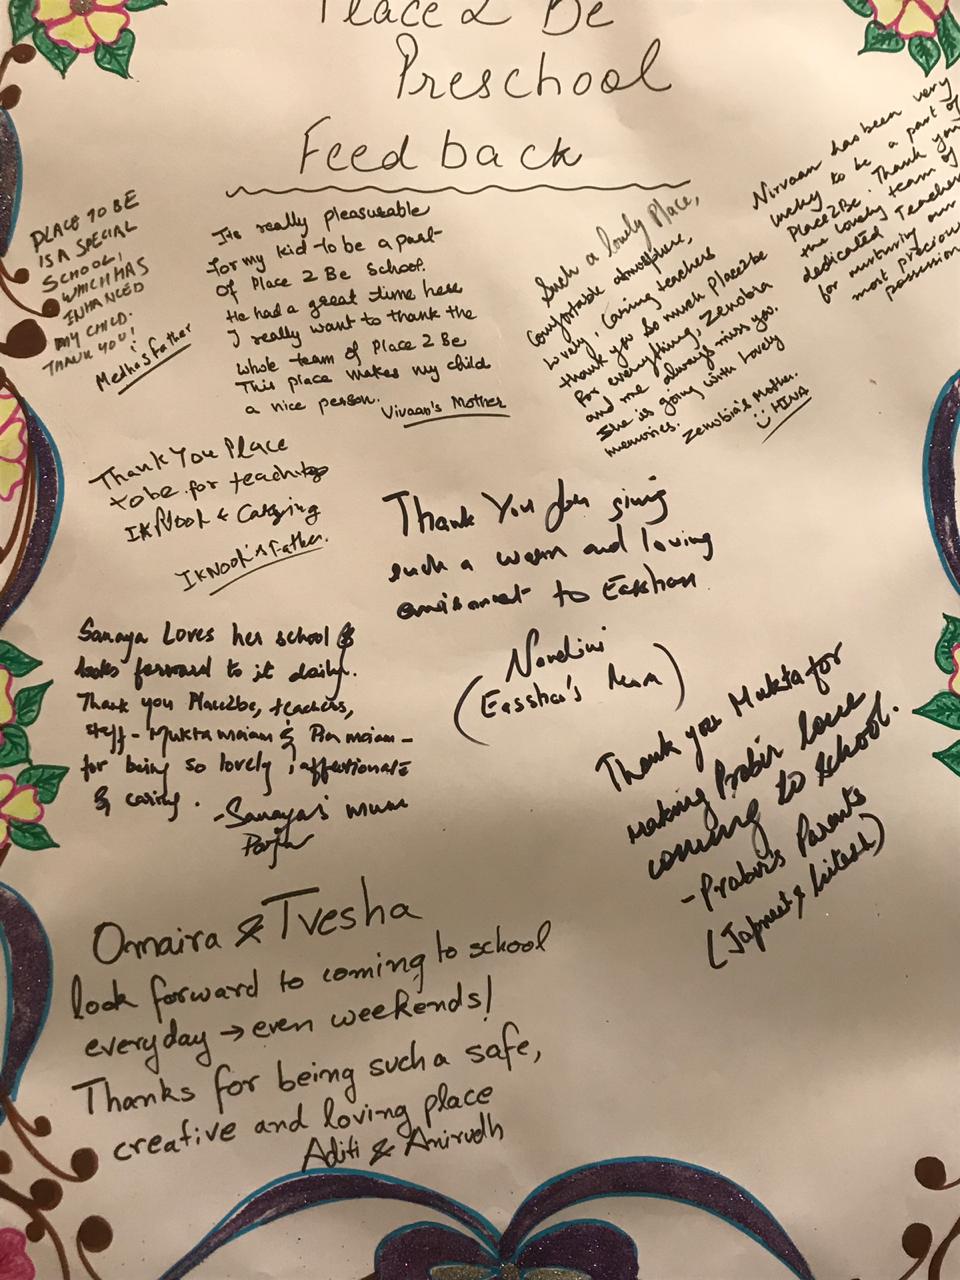 Place 2 Be
Preschool
Feedback
PLACE TO BE
IS A SPECIAL
SCHOOL,
WHICH HAS
INHANCED
MY CHILD.
THANK YOU!
Medha's Father
Its really pleasurable
for my kid to be a part
of Place 2 Be School.
He had a great time here
I really want to thank the
whole team of Place 2 Be
This place makes my child
a nice person.
Vivaan's Mother
Such a lovely Place,
Comfortable atmosphere,
Lovely, Caring teachers
thank you so much Place2be
for everything, Zenobia
and me always miss you.
She is going with lovely
memories.
Zenobia's Mother.
HINA
Nirvaan has been very
lucky to be a part of
Place2Be. Thank you
the lovely team of
dedicated Teachers
for nurturing our
most precious
possession
Thank You Place
to be for teaching
IKNook & Carying
IKNOOK's Father.
Thank You for giving
such a warm and loving
environment to Easshan
Nandini
(Easshan's Mum)
Sanaya Loves her school &
looks forward to it daily.
Thank you Place2be, teachers,
staff - Mukta maiam & maiam -
for being so lovely, affectionate
& caring.
- Sanaya's mum
Thank you Mukta for
making Prabir love
coming to school.
- Prabir's Parents
(Japneet & Hitesh)
Omaira & Tvesha
look forward to coming to school
everyday → even weekends!
Thanks for being such a safe,
creative and loving place
Aditi & Anirudh